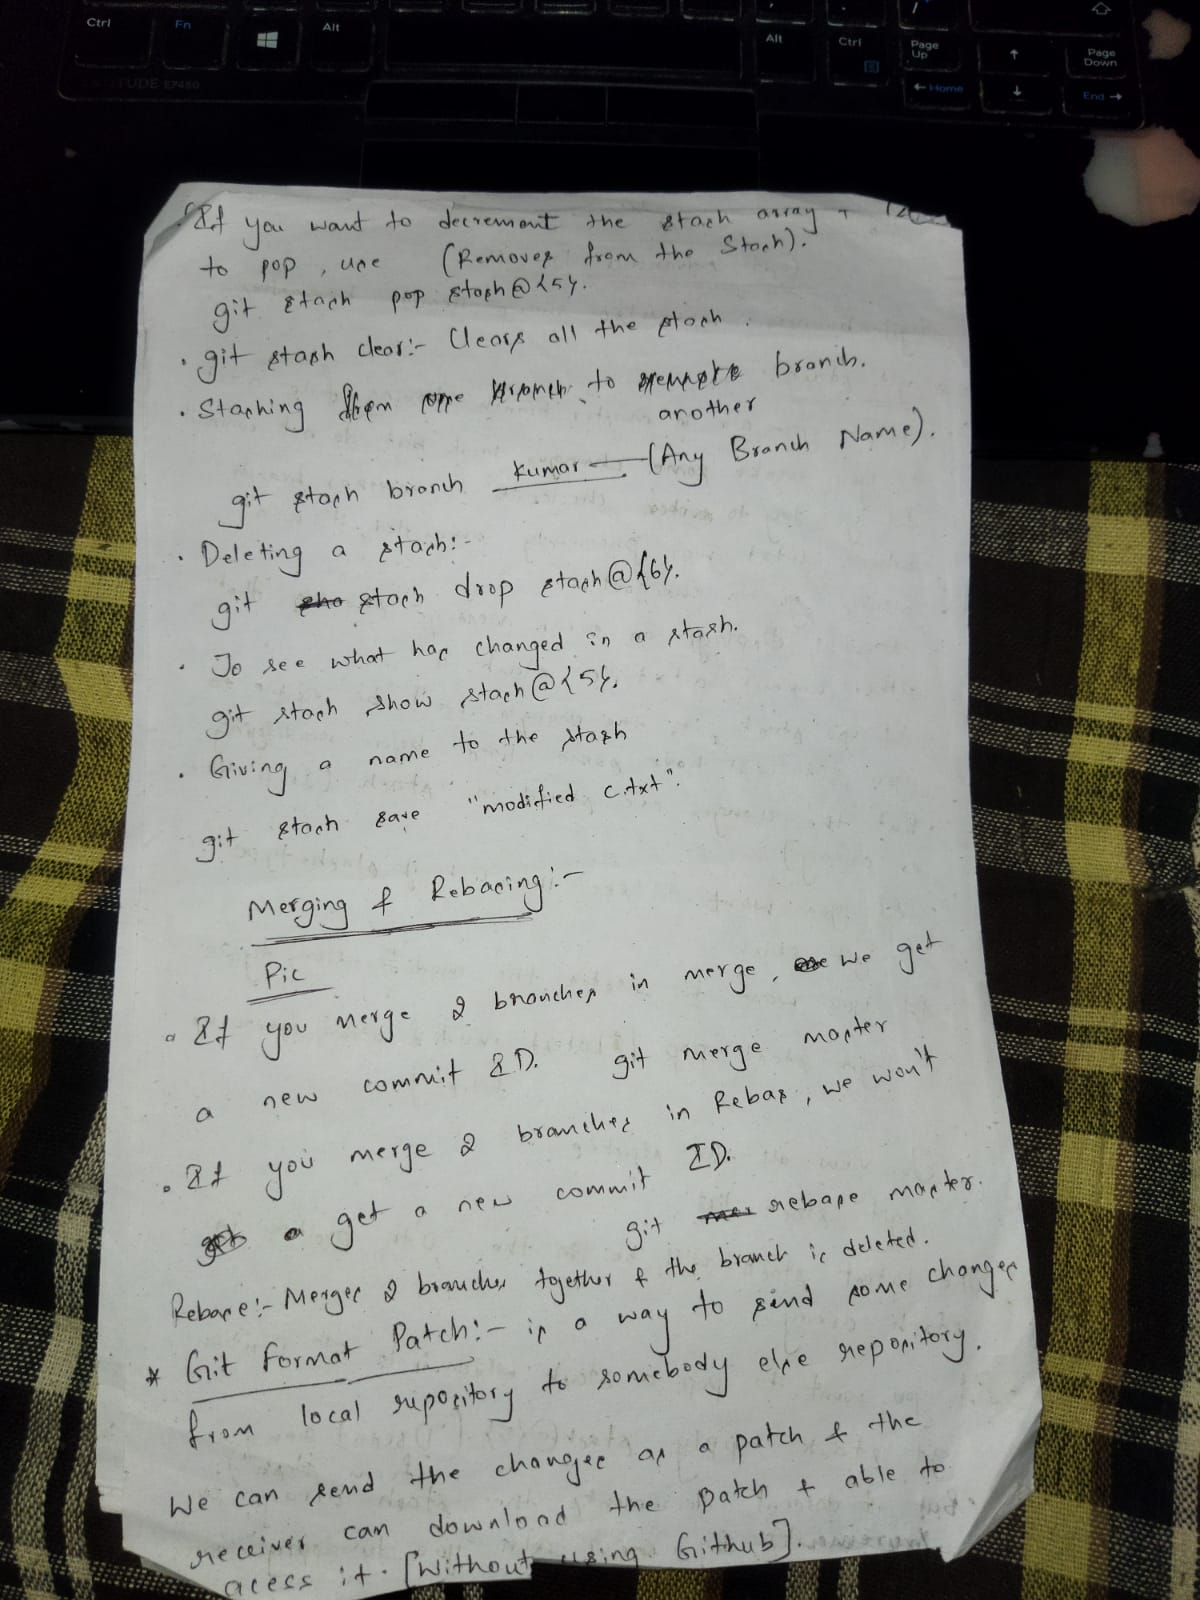 Ctrl Fn Alt Alt Ctrl Page Up Page Down
← Home End →
LATITUDE E7450
If you want to decrement the stash array +
to pop, use (Removes from the Stash).
git stash pop stash@{5}.
• git stash clear:- Clears all the stash.
• Stashing from one branch to remote branch.
another
git stash branch Kumar (Any Branch Name).
• Deleting a stash:-
git sha stash drop stash@{6}.
• To see what has changed in a stash.
git stash show stash@{5}.
• Giving a name to the stash
git stash save "modified c.txt".
Merging & Rebasing:-
Pic
• If you merge 2 branches in merge, we get
a new commit ID. git merge master
• If you merge 2 branches in Rebas, we won't
get a get a new commit ID.
git mer rebase master.
Rebase:- Merges 2 branches together & the branch is deleted.
* Git Format Patch:- is a way to send some changes
from local repository to somebody else repository.
We can send the changes as a patch & the
receiver can download the patch & able to
acess it. [Without using Github].